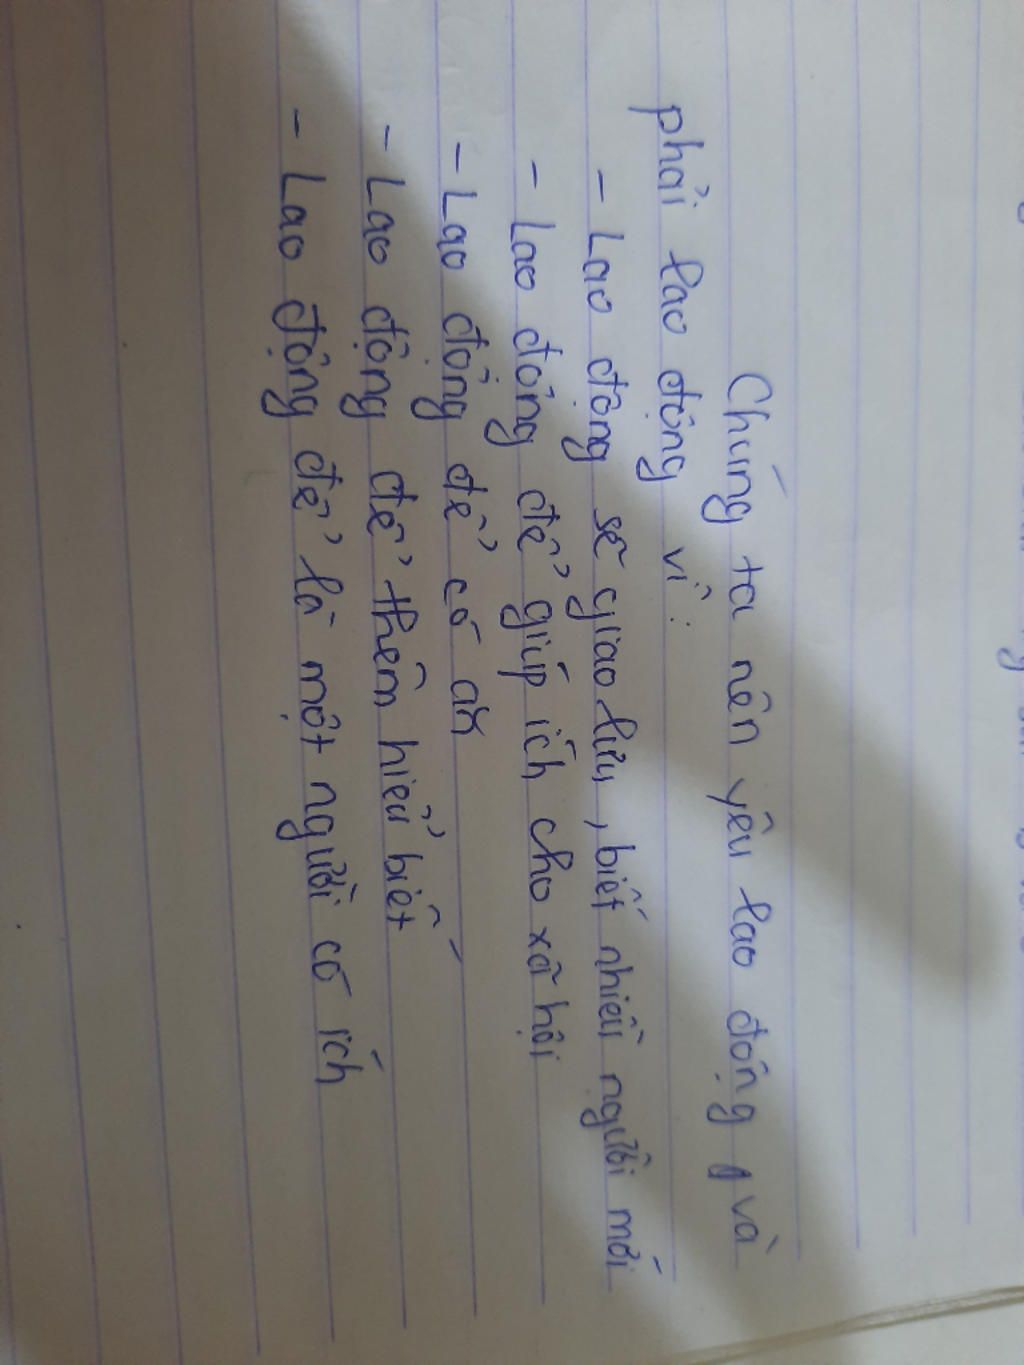 Chúng ta nên yêu lao động và
phải lao động vì:
- Lao động sẽ giao lưu, biết nhiều người mới
- Lao động để giúp ích cho xã hội
- Lao động để có ăn
- Lao động để thêm hiểu biết
- Lao động để là một người có ích